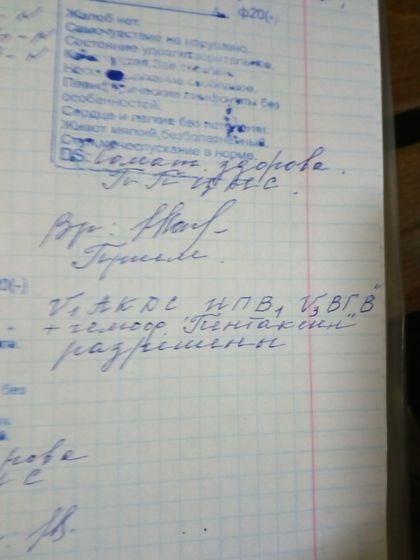 ф20(-)
Жалоб нет.
Самочувствие не нарушено.
Состояние удовлетворительное.
Зев
Носовое дыхание свободное.
Периферические лимфоузлы без
особенностей.
Сердце и легкие без патологии.
Живот мягкий, безболезненный.
Стул, мочеиспускание в норме.
DS: Сомат. здорова.
ПП ЦНС.
Вр:
Прием.
V₁ АКДС ИПВ₁ V₃ ВГВ
+ гемоф. "Пентаксим"
разрешены
0(-)
без
рова
НС